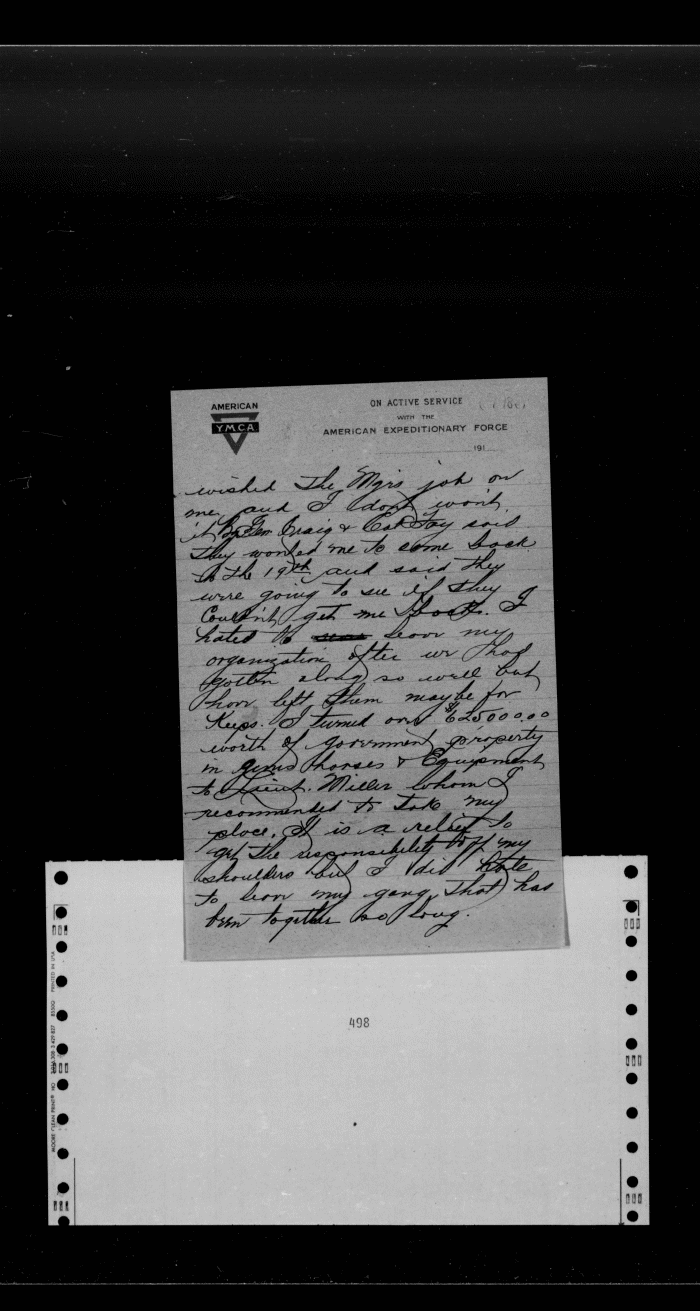 AMERICAN
YMCA
ON ACTIVE SERVICE
WITH THE
AMERICAN EXPEDITIONARY FORCE
191
wished the Mgrs job on
me and I dont want
it Gen Craig & Col Fay said
they wanted me to come back
to the 19th and said they
were going to see if they
Couldnt get me back. I
hated to leave my
organization after we had
gotten along so well but
have left them maybe for
Keeps. I turned over $625000.00
worth of government property
in guns horses & Equipment
to Lieut. Miller whom I
recommended to take my
place. It is a relief to
get the responsibility off my
shoulders but I did hate
to leave my gang that has
been together so long.
498
PRINTED IN USA
MOORE CLEAN PRINT